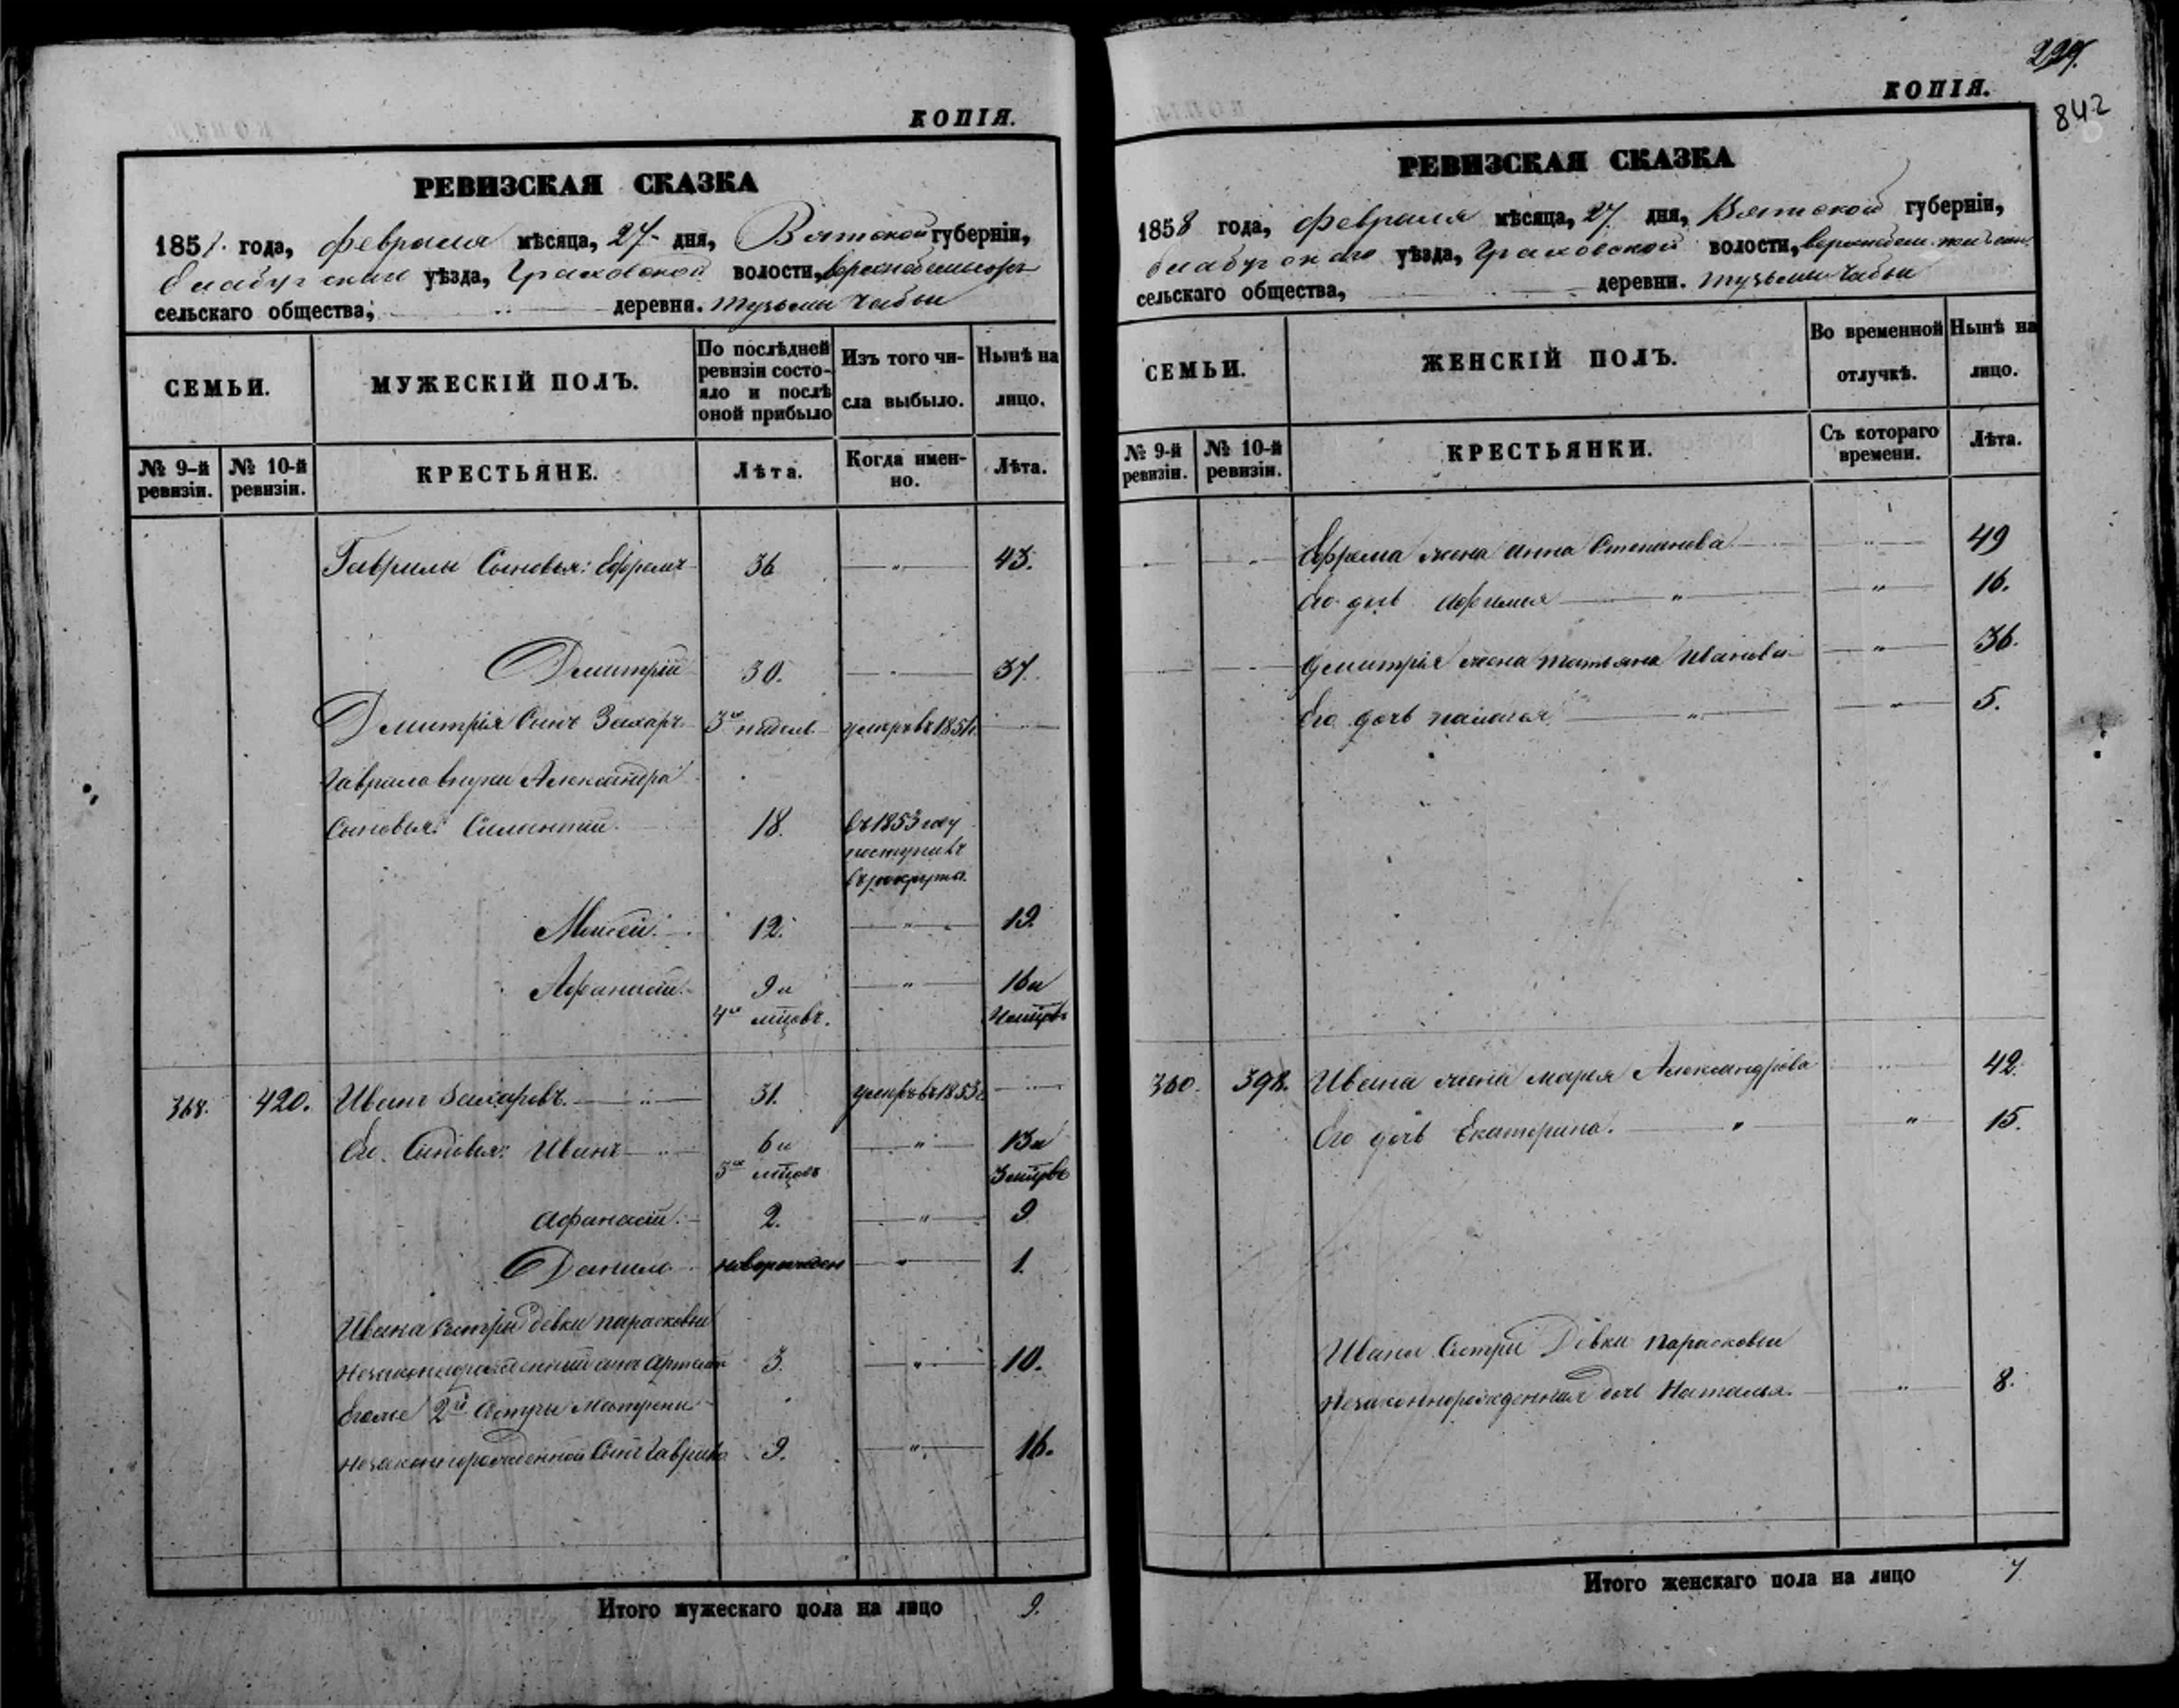 КОПІЯ.
РЕВИЗСКАЯ СКАЗКА
185 года, февраля мѣсяца, 27 дня, Вятской губерніи,
Елабугскаго уѣзда, Граховской волости,
сельскаго общества, деревни. Тузьмы Чабьи
СЕМЬИ.
МУЖЕСКІЙ ПОЛЪ.
По послѣдней ревизіи состояло и послѣ оной прибыло
Изъ того числа выбыло.
Нынѣ на лицо.
№ 9-й ревизіи.
№ 10-й ревизіи.
КРЕСТЬЯНЕ.
Лѣта.
Когда именно.
Лѣта.
Гаврилы Сыновья: Ефремъ 36 — " — 43.
Дмитрій 30. — " — 37.
Дмитрія Сынъ Захаръ 3хъ недѣль умеръ въ 1851
Гаврила внуки Александра
Сыновья: Силантій 18. въ 1853 году
поступилъ
въ рекруты.
Моисей. 12. — " — 19.
Афанасій. 9 и — " — 16 и
4хъ мцовъ. 4 мцовъ
368. 420. Иванъ Захаровъ. — " — 31. умеръ въ 1853
Его Сыновья: Иванъ 6 и — " — 13 и
3хъ мцовъ 3 мцовъ
Афанасій. 2. — " — 9
Данило новорожден — " — 1.
Ивана Сестры девки Парасковьи
незаконнорожденный сынъ 3. — " — 10.
Его же 2й Сестры Матрены
незаконнорожденной Сынъ Гаврило 9. — " — 16.
Итого мужескаго пола на лицо 9.
229.
842
КОПІЯ.
РЕВИЗСКАЯ СКАЗКА
1858 года, февраля мѣсяца, 27 дня, Вятской губерніи,
Елабугскаго уѣзда, Граховской волости,
сельскаго общества, деревни. Тузьмы Чабьи
СЕМЬИ.
ЖЕНСКІЙ ПОЛЪ.
Во временной отлучкѣ.
Нынѣ на лицо.
№ 9-й ревизіи.
№ 10-й ревизіи.
КРЕСТЬЯНКИ.
Съ котораго времени.
Лѣта.
Ефрема жена Анна Степанова — " — 49
Его дочь Афимья — " — 16.
Дмитрія жена Татьяна Иванова — " — 36.
Его дочь Палагея — " — 5.
360. 398. Ивана жена Марья Александрова 42
Его дочь Екатерина. — " — 15.
Ивана Сестры Девки Парасковьи
незаконнорожденная дочь Наталья. " 8.
Итого женскаго пола на лицо 7